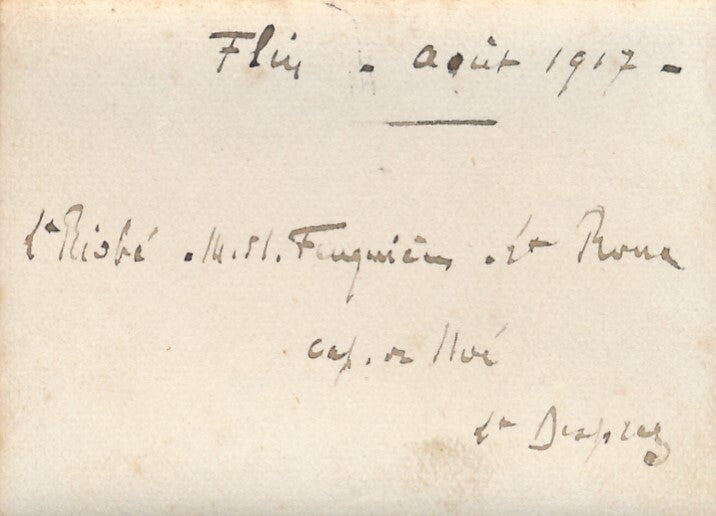 Flin - août 1917 -
Lt Risbé . M. . Feuquières . Lt Roux
cap. de Noé
Lt Desprez